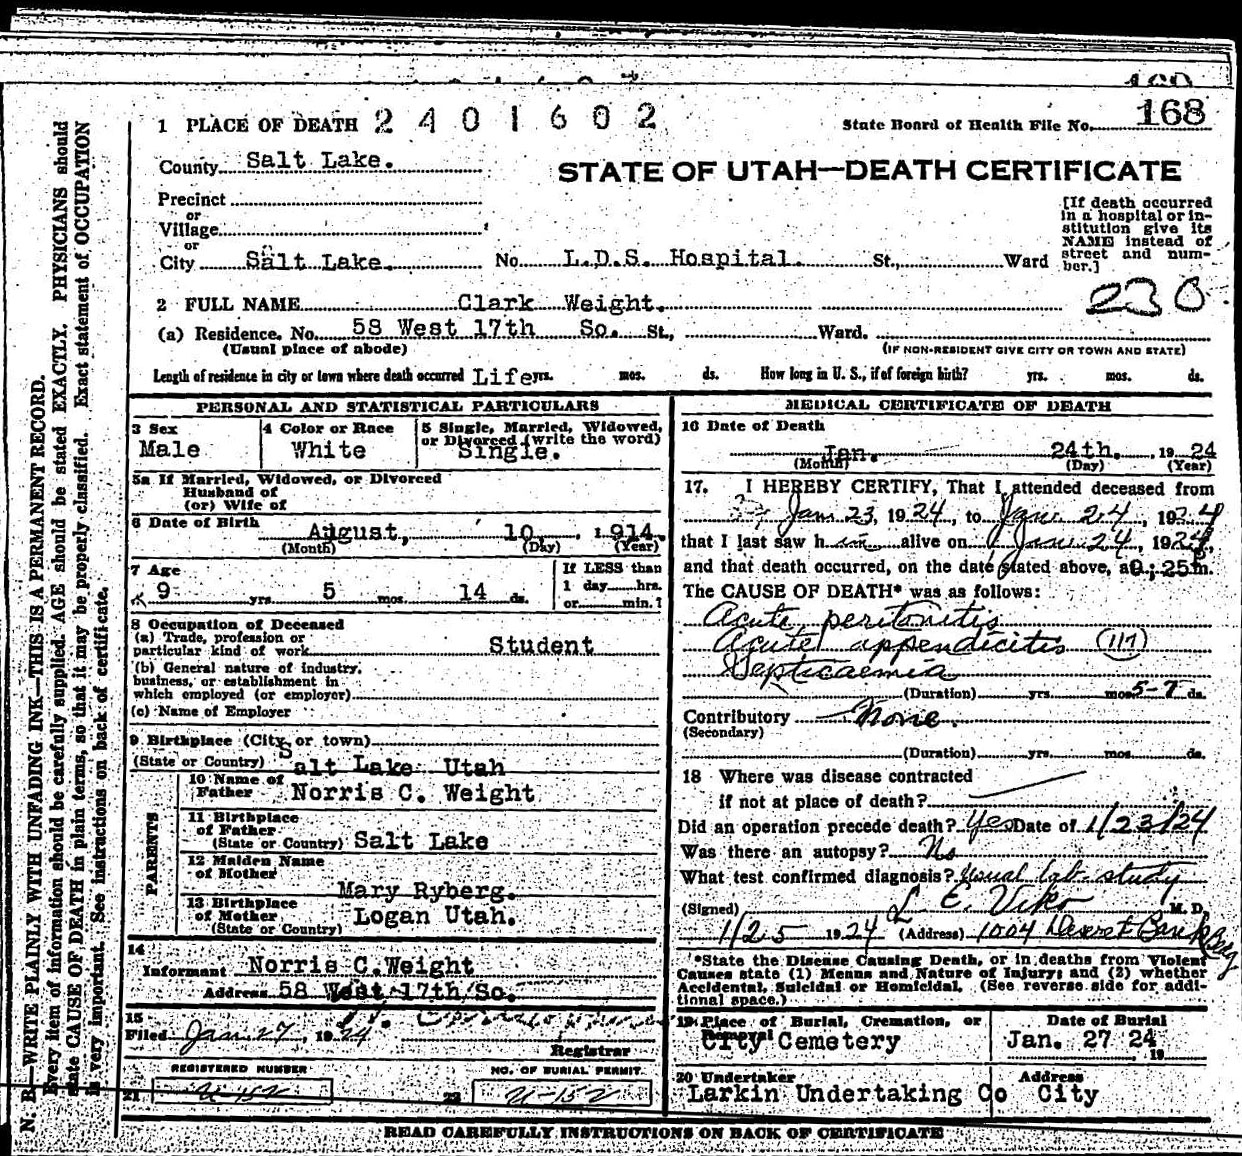 168
1 PLACE OF DEATH 2401602 State Board of Health File No. 168
County Salt Lake.
STATE OF UTAH—DEATH CERTIFICATE
Precinct
or
Village
or
City Salt Lake. No. L.D.S. Hospital. St., Ward
[If death occurred
in a hospital or in-
stitution give its
NAME instead of
street and num-
ber.]
230
2 FULL NAME Clark Weight.
(a) Residence. No. 58 West 17th So. St., Ward.
(Usual place of abode) (IF NON-RESIDENT GIVE CITY OR TOWN AND STATE)
Length of residence in city or town where death occurred Life yrs. mos. ds. How long in U. S., if of foreign birth? yrs. mos. ds.
PERSONAL AND STATISTICAL PARTICULARS
3 Sex
Male
4 Color or Race
White
5 Single, Married, Widowed,
or Divorced (write the word)
Single.
5a If Married, Widowed, or Divorced
Husband of
(or) Wife of
6 Date of Birth
August, 10, 1914.
(Month) (Day) (Year)
7 Age
9 yrs 5 mos 14 ds.
If LESS than
1 day hrs.
or min.?
8 Occupation of Deceased
(a) Trade, profession or
particular kind of work Student
(b) General nature of industry,
business, or establishment in
which employed (or employer)
(c) Name of Employer
9 Birthplace (City or town)
(State or Country) Salt Lake Utah
PARENTS
10 Name of
Father Norris C. Weight
11 Birthplace
of Father
(State or Country) Salt Lake
12 Maiden Name
of Mother
Mary Ryberg.
13 Birthplace
of Mother Logan Utah.
(State or Country)
14
Informant Norris C.Weight
Address 58 West 17th So.
15
Filed Jan. 27, 1924
Registrar
REGISTERED NUMBER
21 U-152
NO. OF BURIAL PERMIT
22 U-152
MEDICAL CERTIFICATE OF DEATH
16 Date of Death
Jan. 24th. 1924
(Month) (Day) (Year)
17. I HEREBY CERTIFY, That I attended deceased from
Jan 23, 1924, to Jan. 24, 1924
that I last saw him alive on Jan 24, 1924,
and that death occurred, on the date stated above, at 9;25 m.
The CAUSE OF DEATH* was as follows:
Acute peritonitis
Acute appendicitis (117)
Septicaemia
(Duration) yrs mos 5-7 ds.
Contributory None.
(Secondary)
(Duration) yrs. mos. ds.
18 Where was disease contracted
if not at place of death?
Did an operation precede death? Yes Date of 1/23/24
Was there an autopsy? No
What test confirmed diagnosis? Usual lab. study
(Signed) L. E. Viko M. D.
1/25 1924 (Address) 1004 Deseret Bank Bldg
*State the Disease Causing Death, or in deaths from Violent
Causes state (1) Means and Nature of Injury; and (2) whether
Accidental, Suicidal or Homicidal. (See reverse side for addi-
tional space.)
19 Place of Burial, Cremation, or
Removal
City Cemetery
Date of Burial
Jan. 27 24
19
20 Undertaker
Larkin Undertaking Co
Address
City
READ CAREFULLY INSTRUCTIONS ON BACK OF CERTIFICATE
N. B.—WRITE PLAINLY WITH UNFADING INK—THIS IS A PERMANENT RECORD.
Every item of information should be carefully supplied. AGE should be stated EXACTLY. PHYSICIANS should
state CAUSE OF DEATH in plain terms, so that it may be properly classified. Exact statement of OCCUPATION
is very important. See instructions on back of certificate.